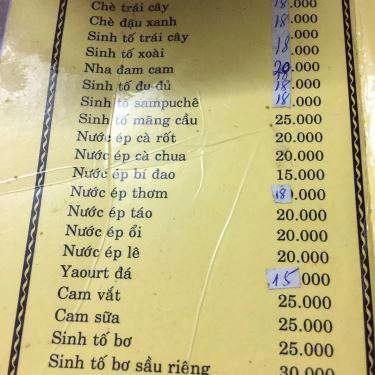 Chè trái cây 18.000
Chè đậu xanh 18.000
Sinh tố trái cây 18.000
Sinh tố xoài 18.000
Nha đam cam 20.000
Sinh tố đu đủ 18.000
Sinh tố sampuchê 18.000
Sinh tố mãng cầu 25.000
Nước ép cà rốt 20.000
Nước ép cà chua 20.000
Nước ép bí đao 15.000
Nước ép thơm 18.000
Nước ép táo 20.000
Nước ép ổi 20.000
Nước ép lê 20.000
Yaourt đá 15.000
Cam vắt 25.000
Cam sữa 25.000
Sinh tố bơ 25.000
Sinh tố bơ sầu riêng 30.000